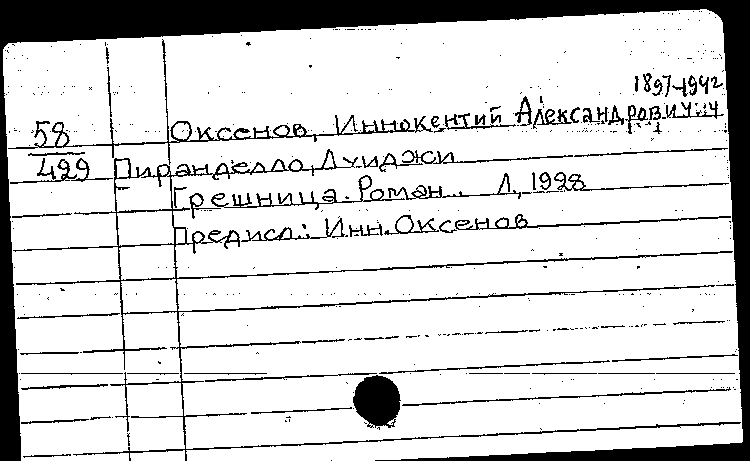 1897-1942
58 Оксенов, Иннокентий Александрович
499 Пиранделло, Луиджи
Грешница. Роман. Л., 1928
Предисл.: Инн. Оксенов